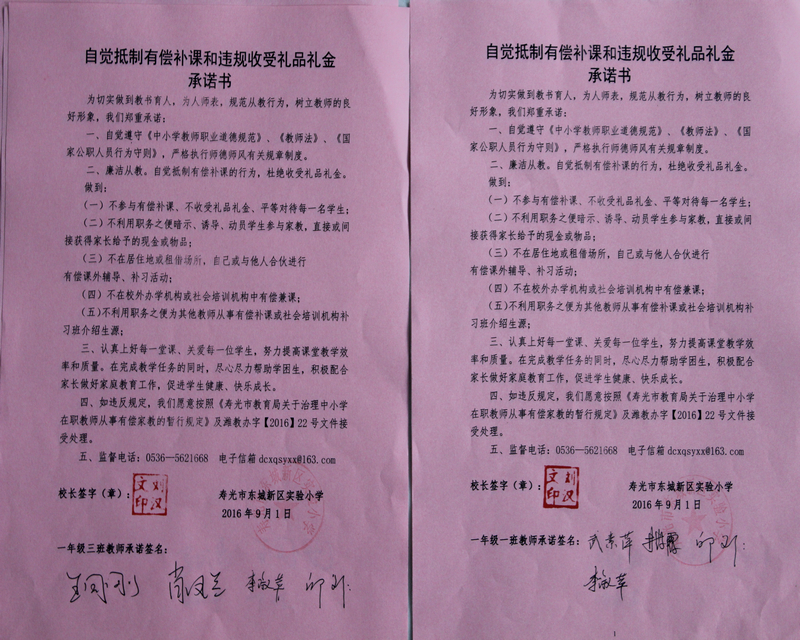 自觉抵制有偿补课和违规收受礼品礼金
承诺书
为切实做到教书育人，为人师表，规范从教行为，树立教师的良
好形象，我们郑重承诺：
一、自觉遵守《中小学教师职业道德规范》、《教师法》、《国
家公职人员行为守则》，严格执行师德师风有关规章制度。
二、廉洁从教。自觉抵制有偿补课的行为，杜绝收受礼品礼金。
做到：
(一）不参与有偿补课、不收受礼品礼金、平等对待每一名学生；
(二）不利用职务之便暗示、诱导、动员学生参与家教，直接或间
接获得家长给予的现金或物品；
(三）不在居住地或租借场所，自己或与他人合伙进行
有偿课外辅导、补习活动；
(四）不在校外办学机构或社会培训机构中有偿兼课；
(五)不利用职务之便为其他教师从事有偿补课或社会培训机构补
习班介绍生源；
三、认真上好每一堂课、关爱每一位学生，努力提高课堂教学效
率和质量。在完成教学任务的同时，尽心尽力帮助学困生，积极配合
家长做好家庭教育工作，促进学生健康、快乐成长。
四、如违反规定，我们愿意按照《寿光市教育局关于治理中小学
在职教师从事有偿家教的暂行规定》及潍教办字【2016】22号文件接
受处理。
五、监督电话：0536—5621668 电子信箱dcxqsyxx@163.com
校长签字（章）： 刘汉文印 寿光市东城新区实验小学
2016年9月1日
一年级三班教师承诺签名：
李敏苹
自觉抵制有偿补课和违规收受礼品礼金
承诺书
为切实做到教书育人，为人师表，规范从教行为，树立教师的良
好形象，我们郑重承诺：
一、自觉遵守《中小学教师职业道德规范》、《教师法》、《国
家公职人员行为守则》，严格执行师德师风有关规章制度。
二、廉洁从教。自觉抵制有偿补课的行为，杜绝收受礼品礼金。
做到：
(一）不参与有偿补课、不收受礼品礼金、平等对待每一名学生；
(二）不利用职务之便暗示、诱导、动员学生参与家教，直接或间
接获得家长给予的现金或物品；
(三）不在居住地或租借场所，自己或与他人合伙进行
有偿课外辅导、补习活动；
(四）不在校外办学机构或社会培训机构中有偿兼课；
(五)不利用职务之便为其他教师从事有偿补课或社会培训机构补
习班介绍生源；
三、认真上好每一堂课、关爱每一位学生，努力提高课堂教学效
率和质量。在完成教学任务的同时，尽心尽力帮助学困生，积极配合
家长做好家庭教育工作，促进学生健康、快乐成长。
四、如违反规定，我们愿意按照《寿光市教育局关于治理中小学
在职教师从事有偿家教的暂行规定》及潍教办字【2016】22号文件接
受处理。
五、监督电话：0536—5621668 电子信箱dcxqsyxx@163.com
校长签字（章）： 刘汉文印 寿光市东城新区实验小学
2016年9月1日
一年级一班教师承诺签名： 武素萍
李敏苹
1